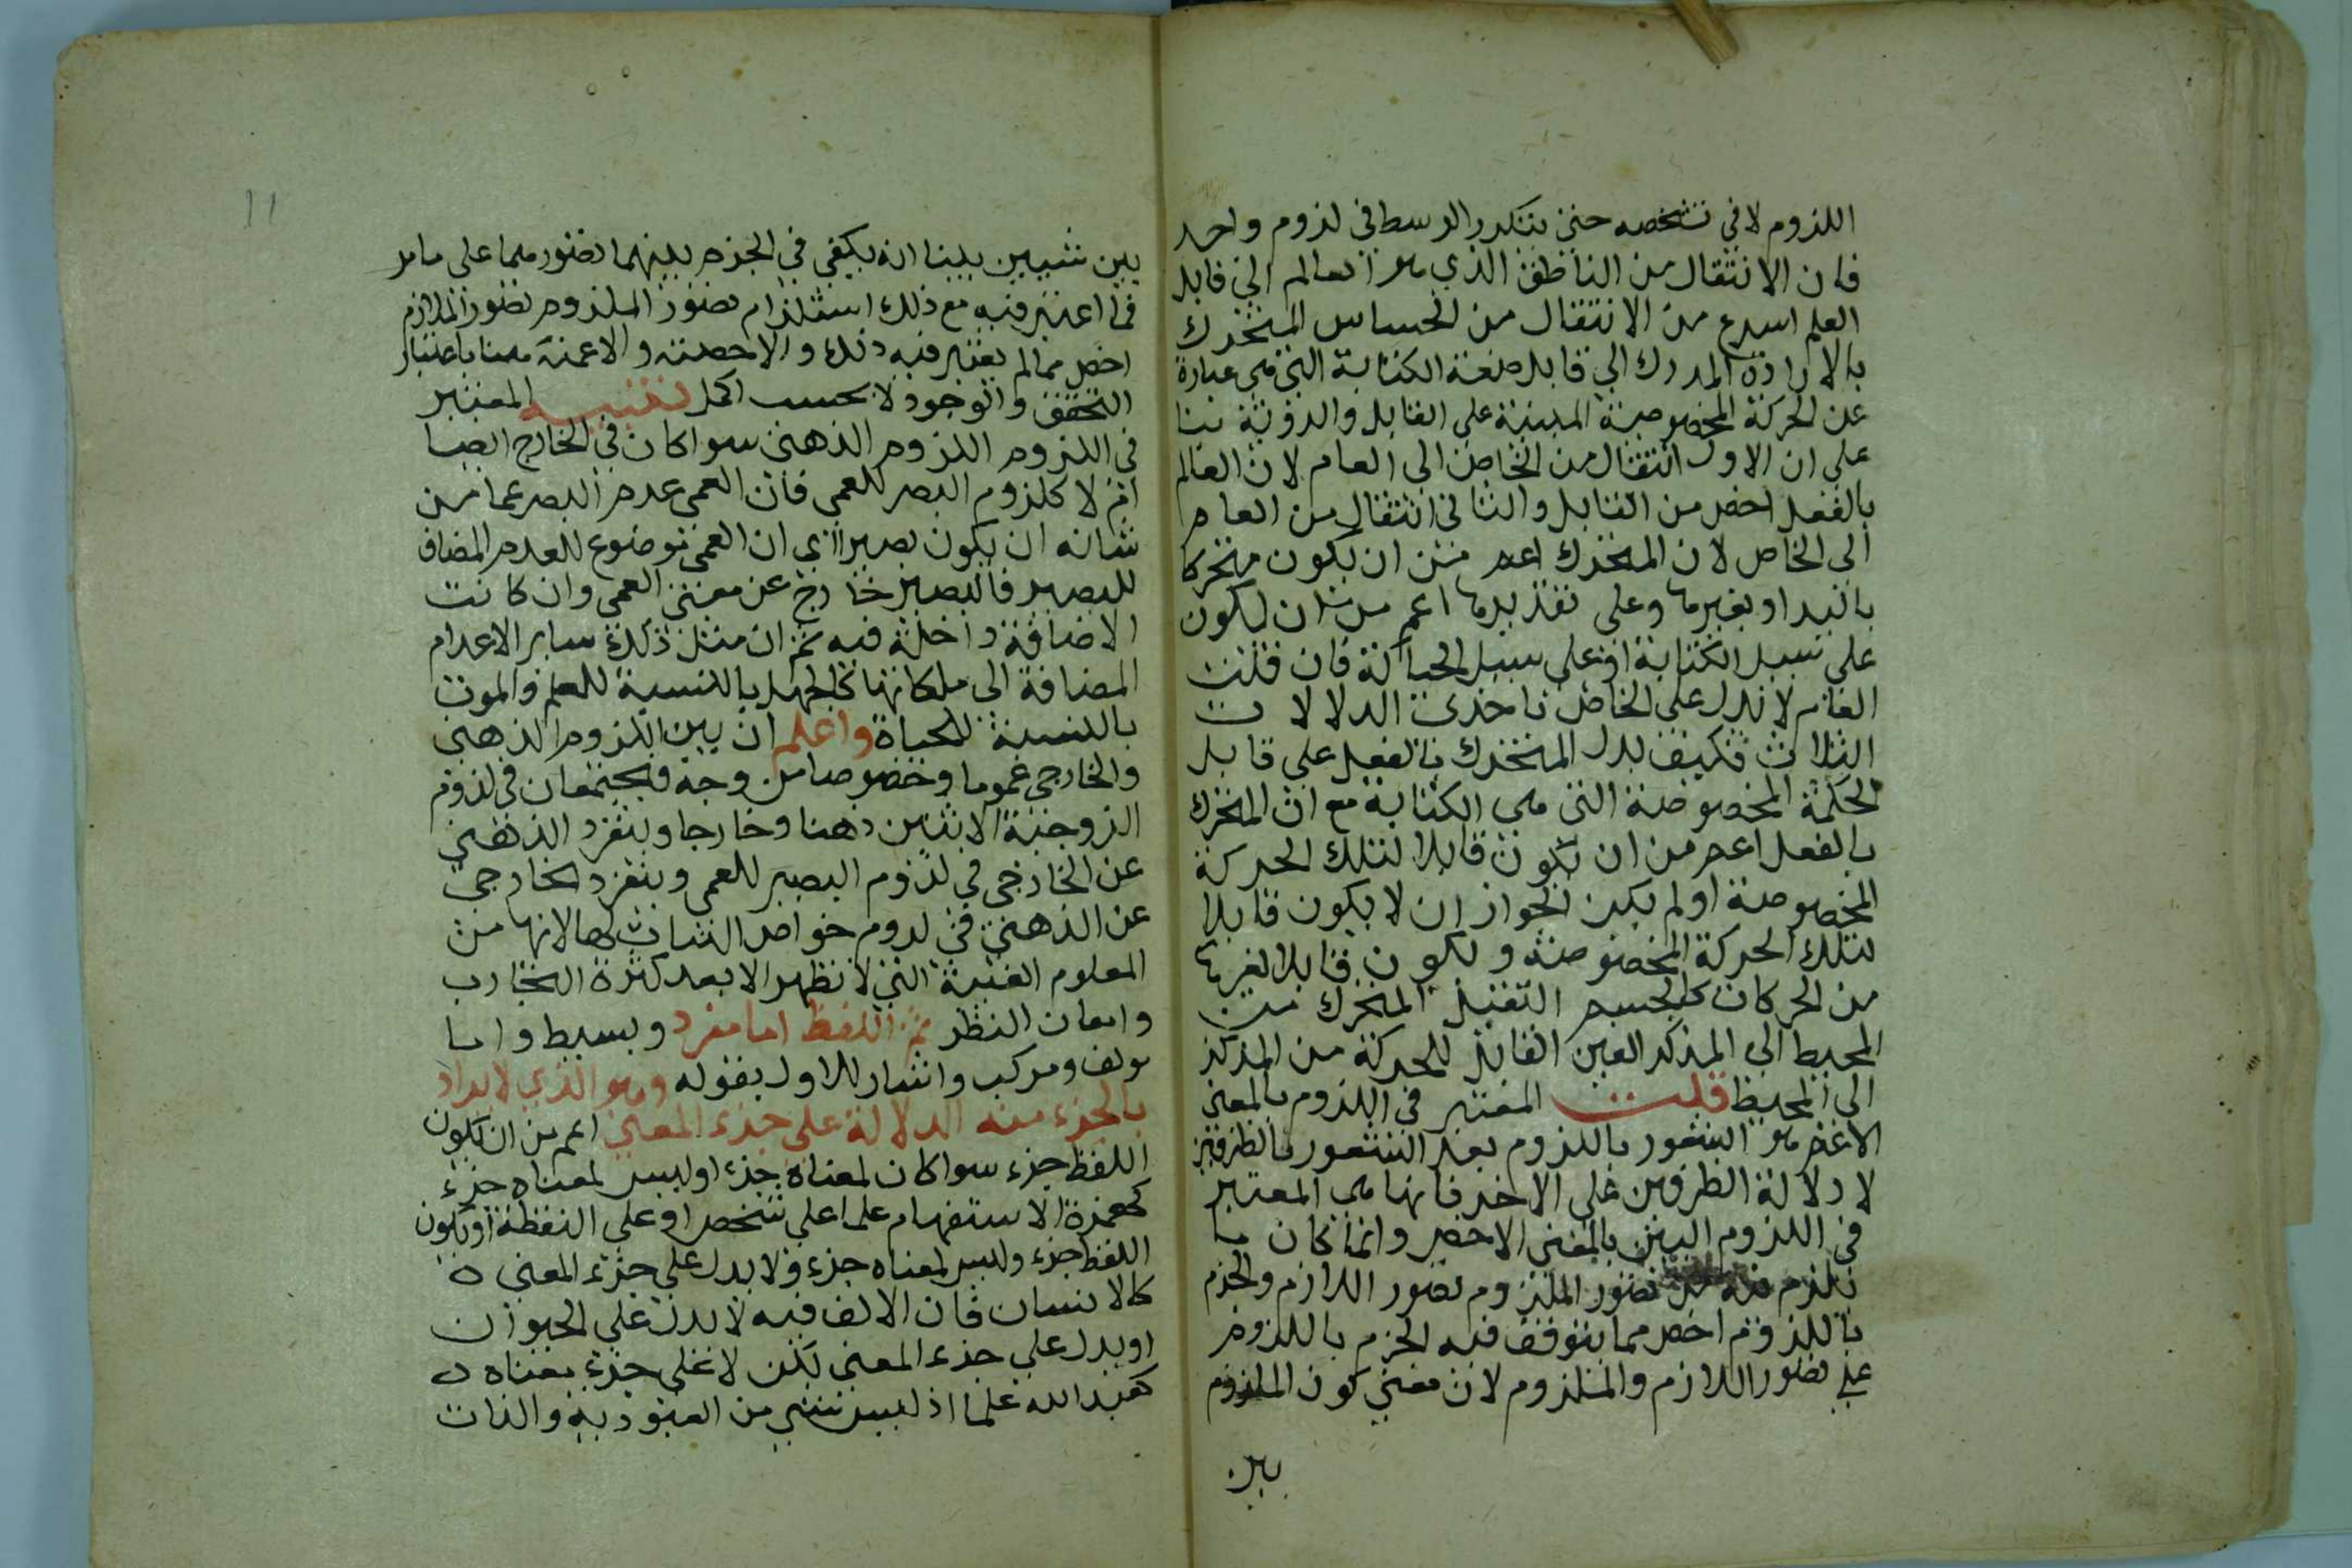 اللزوم لا في تشخصه حتى يتكرر الوسط في لزوم واحد
فان الانتقال من الناطق الذي هو العالم الى قابل
العلم اسرع من الانتقال من الحساس المتحرك
بالارادة المدرك الى قابل صنعة الكتابة التي هي عبارة
عن الحركة المخصوصة المبينة على القابل والروية بنا
على ان الاول انتقال من الخاص الى العام لان العالم
بالفعل اخص من القابل والثاني انتقال من العام
الى الخاص لان المتحرك اعم من ان يكون متحركا
باليد او بغيرها وعلى تقديرها اعم من ان يكون
على سبيل الكتابة او على سبيل الحياكة فان قلت
العام لا يدل على الخاص باحدى الدلالات
الثلاث فكيف يدل المتحرك بالفعل على قابل
الحكمة المخصوصة التي هي الكتابة مع ان المتحرك
بالفعل اعم من ان يكون قابلا لتلك الحركة
المخصوصة او لم يكن لجواز ان لا يكون قابلا
لتلك الحركة المخصوصة ويكون قابلا لغيرها
من الحركات كالجسم الثقيل المتحرك من
المحيط الى المركز الغير القابل للحركة من المركز
الى المحيط قلت المعتبر في اللزوم بالمعنى
الاعم هو الشعور باللزوم بعد الشعور بالطرفين
لا دلالة الطرفين على الاخر فانها هي المعتبر
في اللزوم البين بالمعنى الاخص وانما كان ما
يلزم فيه من تصور الملزوم تصور اللازم والجزم
باللزوم اخص مما يتوقف فيه الجزم باللزوم
على تصور اللازم والملزوم لان معنى كون الملزوم
بين
١١
بين شيئين بينا انه يكفي في الجزم بينهما تصورهما على ما مر
فما اعتبر فيه مع ذلك استلزام تصور الملزوم تصور اللازم
اخص مما لم يعتبر فيه ذلك والاخصية والاعمية هنا باعتبار
التحقق والوجود لا بحسب الحمل تنبيه المعتبر
في اللزوم اللزوم الذهني سوا كان في الخارج ايضا
ام لا كلزوم البصر للعمى فان العمى عدم البصر عما من
شانه ان يكون بصيرا اي ان العمى موضوع للعدم المضاف
للبصر فالبصر خارج عن معنى العمى وان كانت
الاضافة داخلة فيه ثم ان مثل ذلك ساير الاعدام
المضافة الى ملكاتها كالجهل بالنسبة للعلم والموت
بالنسبة للحياة واعلم ان بين اللزوم الذهني
والخارجي عموما وخصوصا من وجه فيجتمعان في لزوم
الزوجية الاثنين ذهنا وخارجا وينفرد الذهني
عن الخارجي في لزوم البصر للعمى وينفرد الخارجي
عن الذهني في لزوم خواص النبات لها لانها من
المعلوم الغيبة التي لا تظهر الا بعد كثرة التجارب
وامعان النظر ثم اللفظ اما مفرد وبسيط واما
مولف ومركب واشار للاول بقوله وهو الذي لا يراد
بالجزء منه الدلالة على جزء المعنى اعم من ان يكون
اللفظ جزء سوا كان لمعناه جزء او ليس لمعناه جزء
كهمزة الاستفهام علما على شخص او على النقطة او يكون
اللفظ جزء وليس لمعناه جزء ولا يدل على جزء المعنى ه
كالانسان فان الالف فيه لا يدل على الحيوان
او يدل على جزء المعنى لكن لا على جزء معناه ه
كعبد الله علما اذ ليس شيي من العبودية والذات